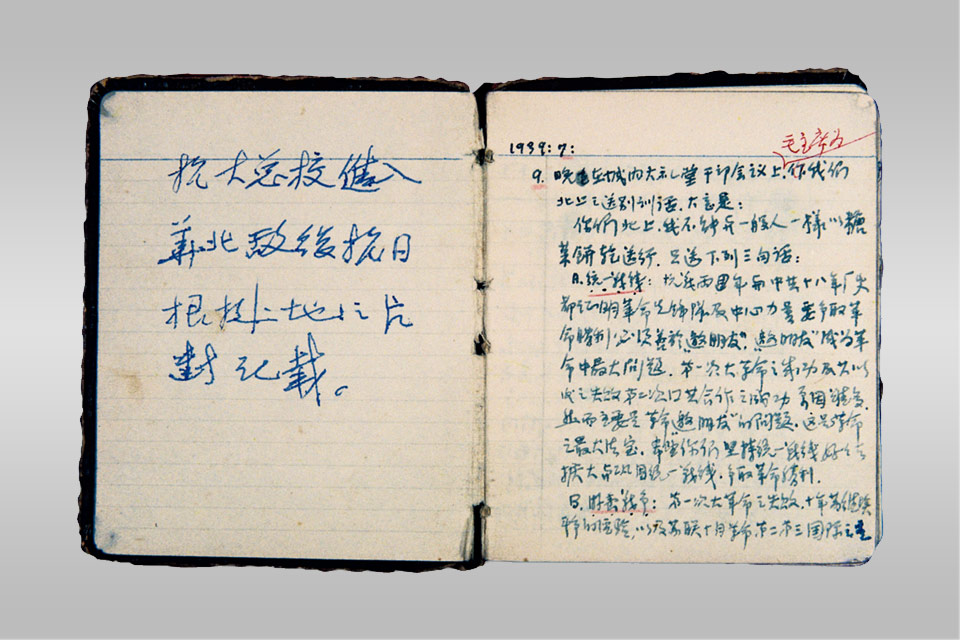 抗大总校進入
華北敌後抗日
根据地之片
對記載。
毛主席为
1939:7:
9. 晚在城内大礼堂干部会议上,作我们
北上之送别训话,大意是:
你们北上,我不能与一般人一樣以糖
菓餅乾送行,只送下列三句话:
A. 统一战线:抗战两周年与中共十八年历史
都证明革命先锋隊及中心力量要争取革
命勝利必须善於"邀朋友","邀朋友"成为革
命中最大问题,第一次大革命之成功及
之失敗第二次国共合作之成功 原因
然而主要是革命"邀朋友"的问题,这是革命
之最大法宝,希望你们坚持统一战线好好去
扩大与巩固统一战线,争取革命勝利.
B. 游击战争:第一次大革命之失敗,十年苏维埃
的经验,以及苏联十月革命第二第三国际之